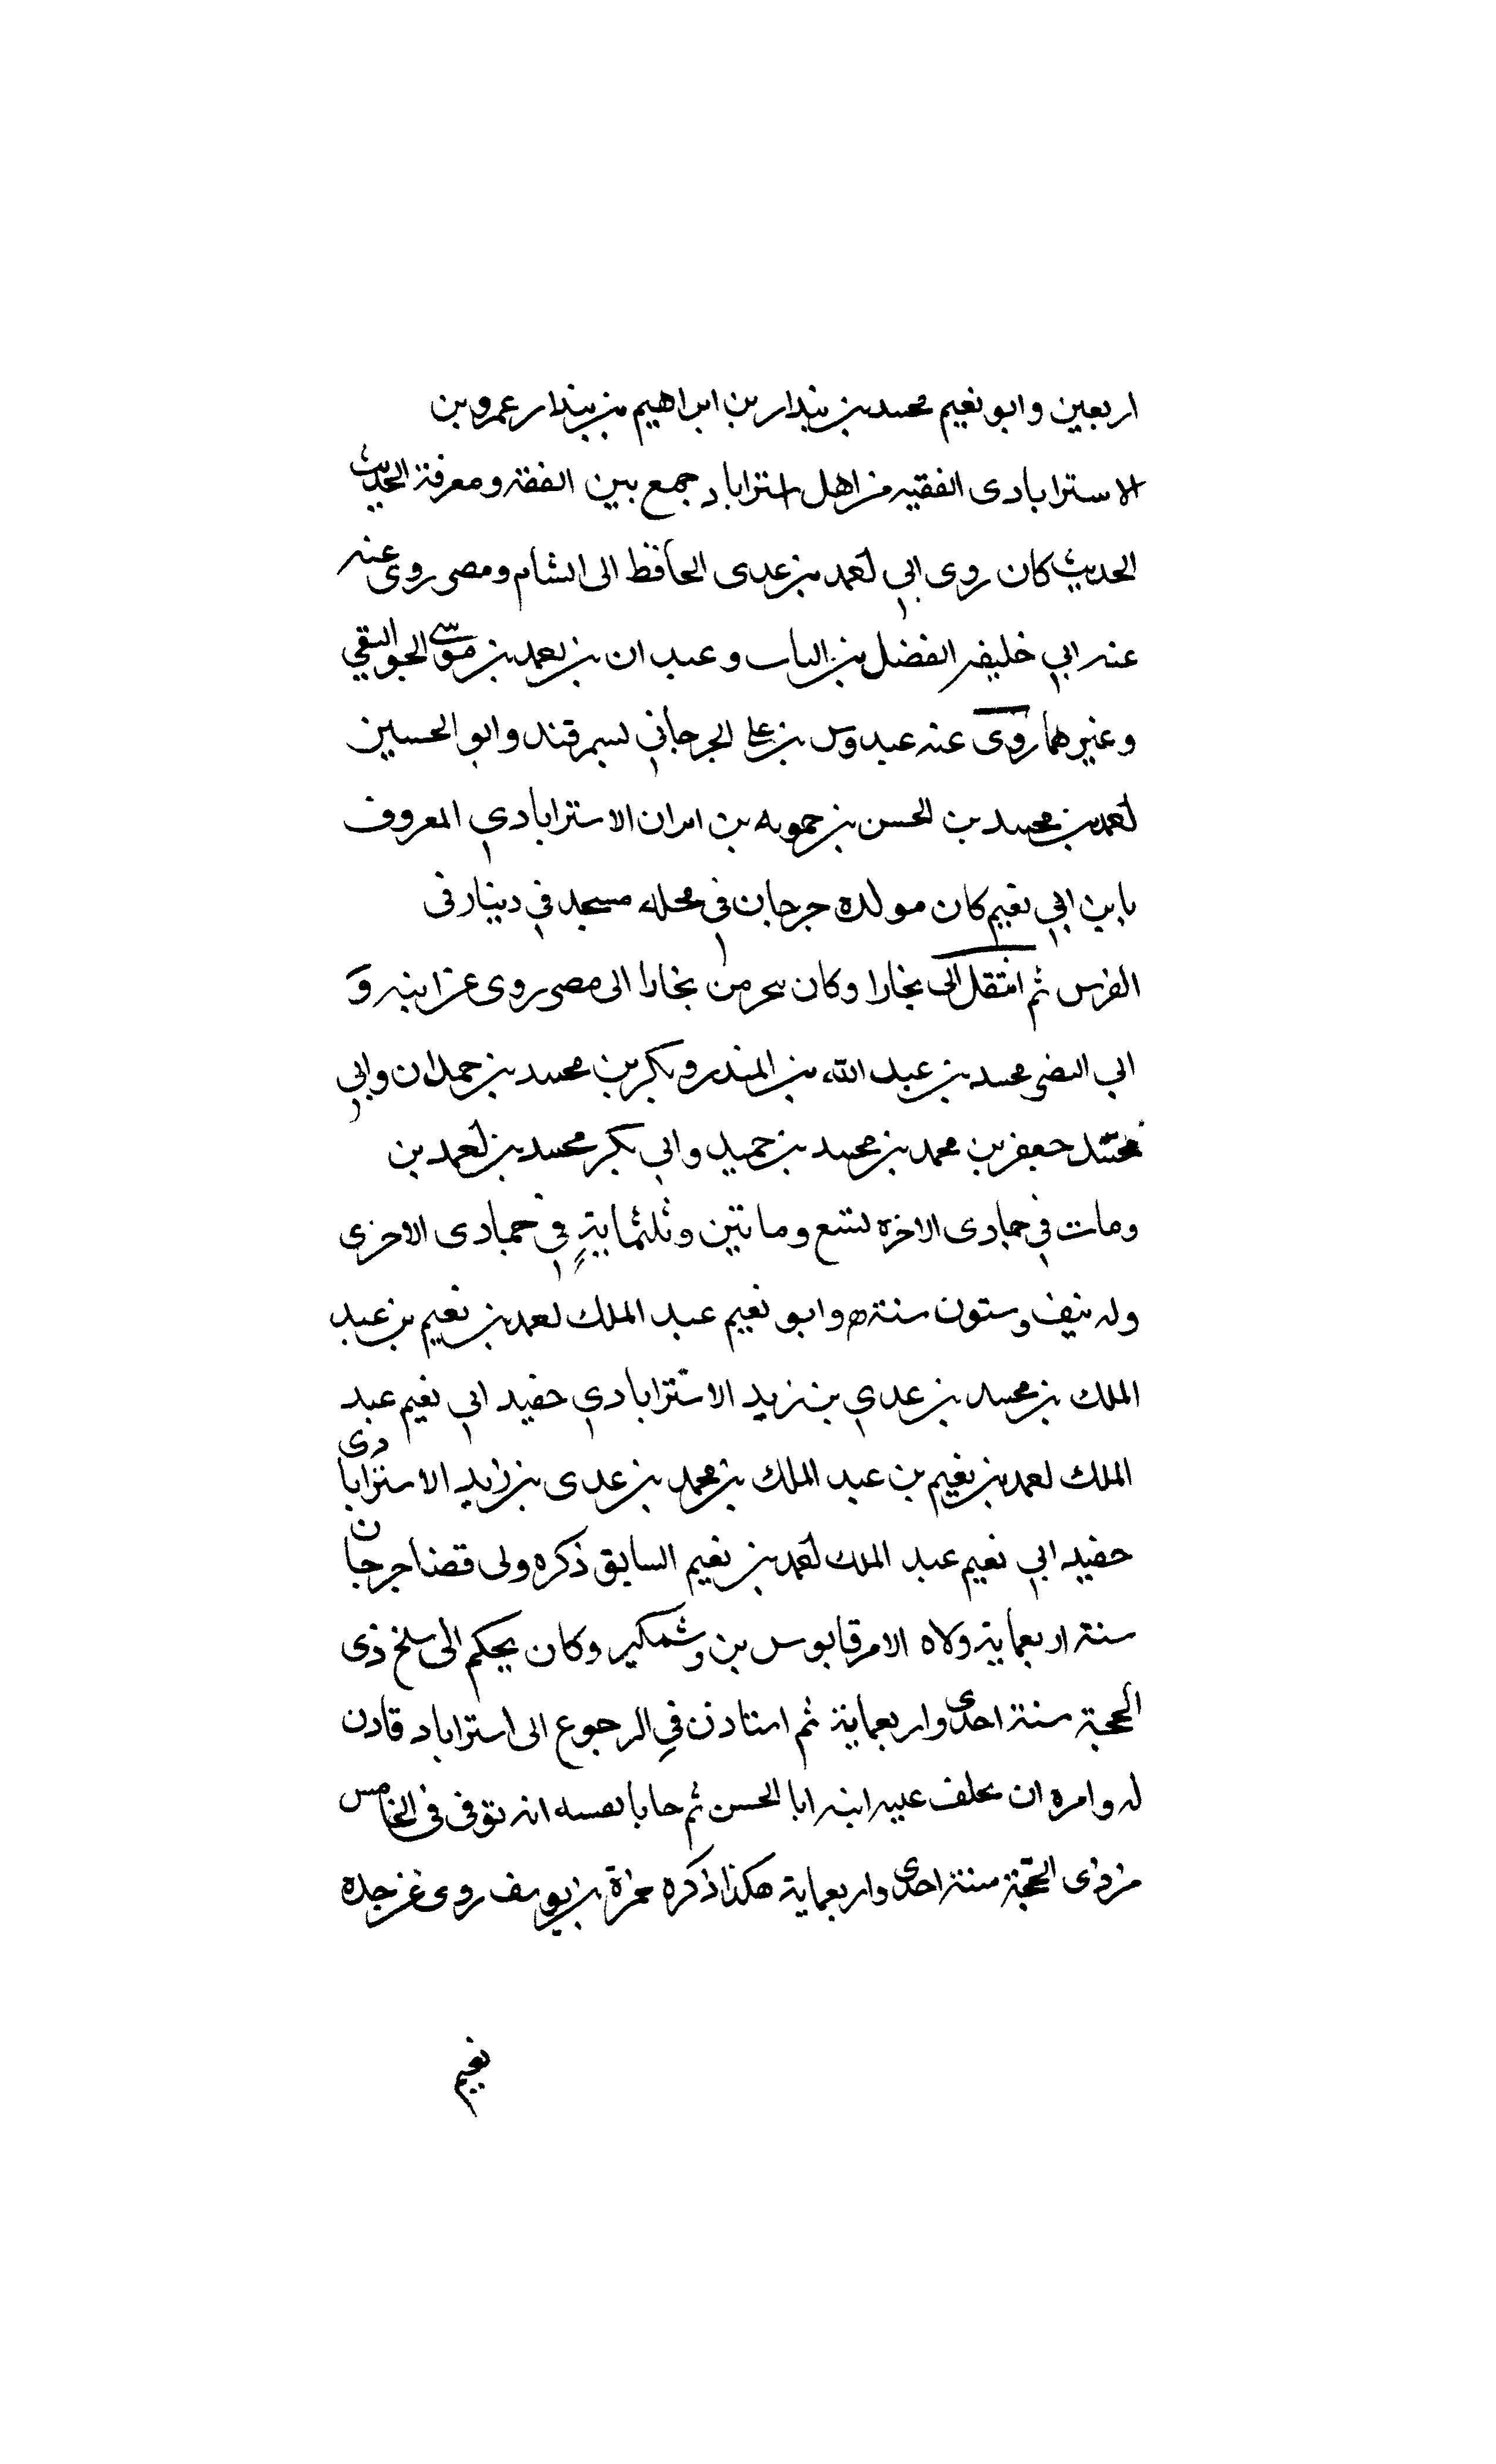 اربعين وابو نعيم محمد بن بندار بن ابراهيم بن بندار عمرو بن
الاسترابادى الفقيه من اهل استراباد جمع بين الفقه ومعرفة الحديث
الحديث كان روى ابي احمد بن عدى الحافظ الى الشام ومصر روى عنه
عنه ابي خليفه الفضل بن الباب وعبدان بن احمد بن موسى الجواليقي
وغيرهما روى عنه عبدوس بن على الجرجاني بسمرقند وابو الحسين
احمد بن محمد بن الحسن بن حمويه بن ابران الاسترابادي المعروف
بابن ابي نعيم كان مولده جرجان في محله مسجد في دينار فى
الفرس ثم انتقل الى بخارا وكان من بخارا الى مصر روى عن ابيه و
ابي النضر محمد بن عبد الله بن المنذر وبكر بن محمد بن حمدان وابي
محمد جعفر بن محمد بن محمد بن حميد وابي بكر محمد بن احمد بن
ومات في جمادى الاخره لتسع وماتين وثلثماية في جمادى الاخرى
وله نيف وستون سنة ه وابو نعيم عبد الملك احمد بن نعيم بن عبد
الملك بن محمد بن عدي بن زيد الاسترابادي حفيد ابي نعيم عبد
الملك احمد بن نعيم بن عبد الملك بن محمد بن عدى بن زايد الاسترابادى
حفيد ابي نعيم عبد الملك احمد بن نعيم السابق ذكره ولى قضا جرجان
سنة اربعماية ولاه الامر قابوس بن وشمكير وكان يحكم الى سلخ ذى
الحجة سنة احدى واربعماية ثم استاذن في الرجوع الى استراباد فاذن
له وامره ان يخلف عليه ابنه ابا الحسن ثم انه توفى فى الخامس
من ذى الحجة سنة احدى واربعماية هكذا ذكره حمزة بن يوسف روى عن جده
نعيم